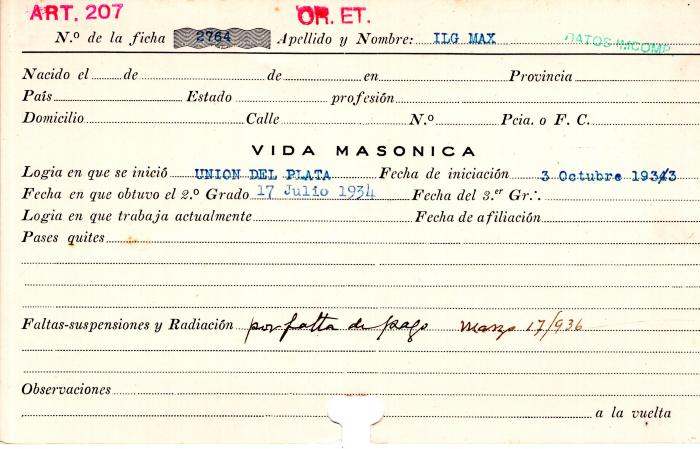 ART. 207 OR. ET.
N.º de la ficha 2764 Apellido y Nombre: ILG MAX DATOS INCOMP.
Nacido el de de en Provincia
País Estado profesión
Domicilio Calle N.º Pcia. o F. C.
VIDA MASONICA
Logia en que se inició UNION DEL PLATA Fecha de iniciación 3 Octubre 1933
Fecha en que obtuvo el 2.º Grado 17 Julio 1934 Fecha del 3.er Gr∴
Logia en que trabaja actualmente Fecha de afiliación
Pases quites
Faltas-suspensiones y Radiación por falta de pago Marzo 17/936
Observaciones
a la vuelta